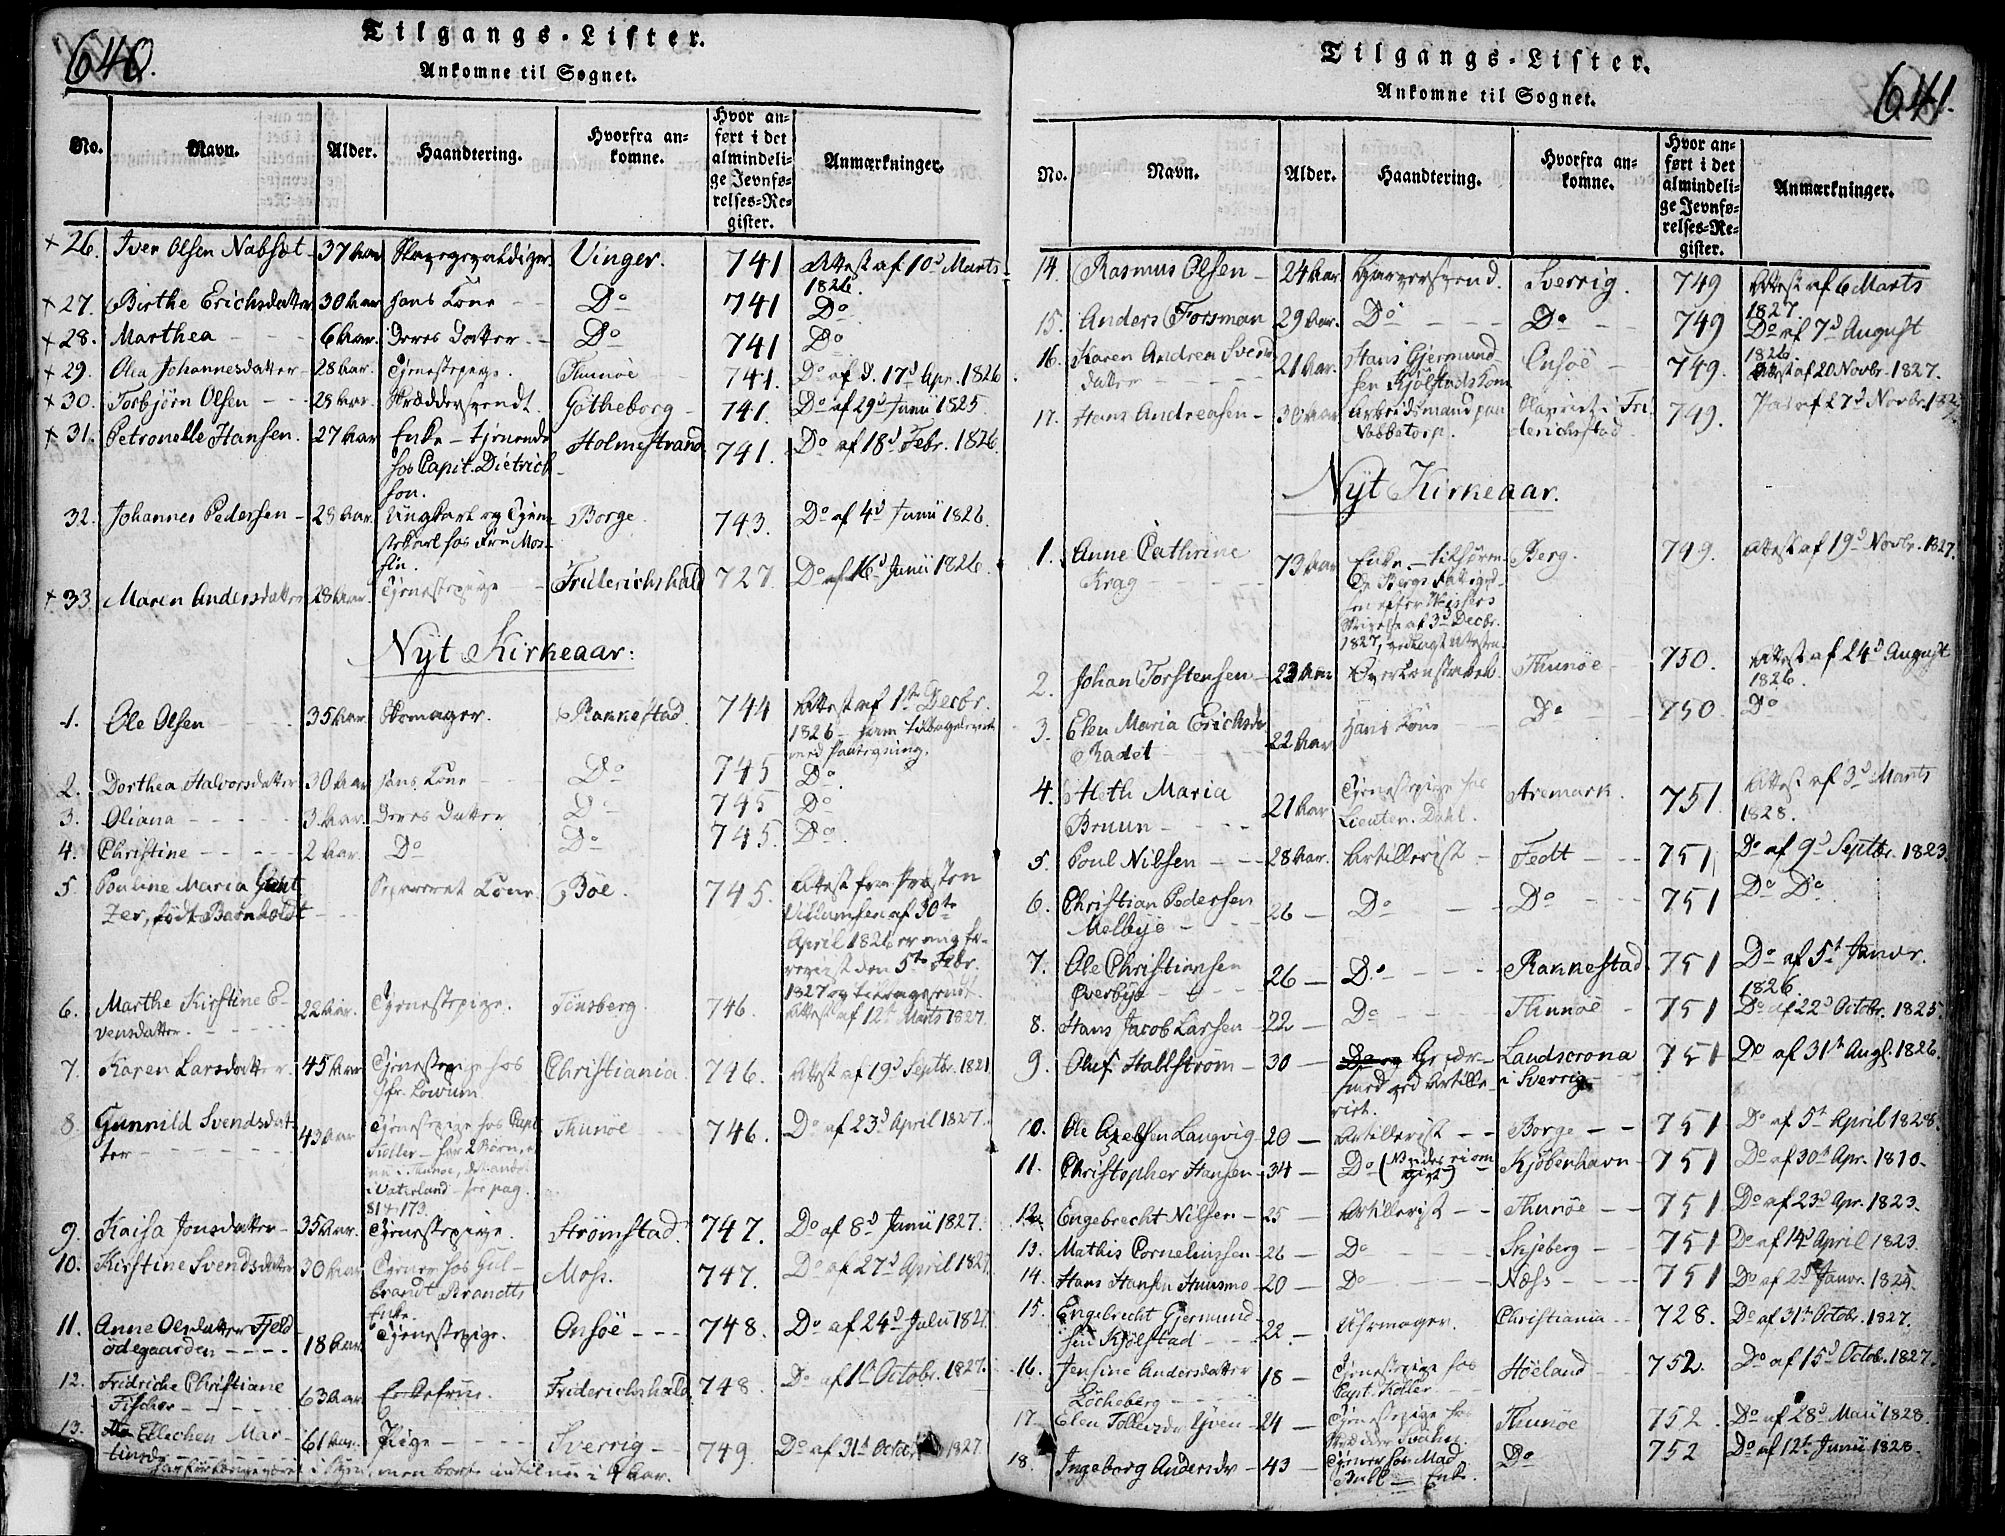 640.
Tilgangs-Lister.
Ankomne til Sognet.
No. Navn. Alder. Haandtering. Hvorfra ankomne. Hvor anført i det almindelige Jevnførelses-Register. Anmærkninger.
+ 26. Iver Olsen Nabset 37 Aar Vinger. 741 Attest af 10d Marts 1826.
+ 27. Birthe Erichsdatter 30 Aar hans Kone Do 741 Do
+ 28. Marthea 6 Aar. Deres Datter Do 741 Do
+ 29. Olea Johannesdatter 28 Aar. Tjenestepige. Thunöe 741. Do af d. 17d Apr. 1826
+ 30. Torbjörn Olsen 28 Aar. Skræddersvendt. Götheborg 741. Do af 29d Junii 1825
+ 31. Petronelle Hansen. 27 Aar Enke - tjenende hos Capit. Dietrichson. Holmestrand 741. Do af 18d Febr. 1826
32. Johannes Pedersen 28 Aar. Ungkarl og Tjenestekarl hos Fru Borge. 743. Do af 4d Junii 1826.
+ 33. Maren Andersdatter 28 Aar. Tjenestepige Friderichshald 727. Do af 16d Junii 1826.
Nyt Kirkeaar:
1. Ole Olsen 35 Aar Skomager. Rakkestad 744 Attest af 1ste Decbr. 1826 - som tilbageleveret med Paategning.
2. Dorthea Halvorsdatter 30 Aar hans Kone Do 745 Do.
3. Oliana 3 Aar. Deres Datter Do 745 Do
4. Christine 2 Aar. Do Do 745. Do.
5 Pouline Maria
født Barnholdt Separeret Kone Böe. 745. Attest fra Præsten Willumsen af 30te April 1826 er mig foreviist den 5te Febr. 1827 og tilbagesendt.
6. Marthe Kirstine Evensdatter 22 Aar. Tjenestepige. Tönsberg 746. Attest af 12te Marts 1827.
7. Karen Larsdatter 45 Aar Tjenestepige hos Lowum. Christiania 746. Attest af 19d Septbr. 1821
8 Gunnild Svendsdatter 43 Aar Tjenestepige hos Capt. Koller - har 2 Börn, et nu i Thunöe, det andet i Vaterland - see pag. 81 & 173. Thunöe 746. Do af 23d April 1827.
9. Kaisa Jonsdatter 35 Aar. Tjenestepige. Strömstad. 747. Do af 8d Junii 1827.
10. Kirstine Svendsdatter 30 Aar Tjener hos Gulbrandt Brandts Enke. Moss. 747. Do af 27d April 1827.
11. Anne Olsdatter Fjeldödegaarden 18 Aar. Tjenestepige. Onsöe 748. Do af 24d Julii 1827.
12. Fridriche Christiane Fischer 63 Aar Enkefrue. Friderichshald 748. Do af 1te Octobr. 1827.
13. Ellechen Marlinsdr 61 Aar. Pige Sverrig 749. Do af 31te Octobr 1827
har for længe været i Byen, men borte indtil nu i 4 Aar.
641.
Tilgangs-Lister.
Ankomne til Sognet.
No. Navn. Alder. Haandtering. Hvorfra ankomne. Hvor anført i det almindelige Jevnførelses-Register. Anmærkninger.
14. Rasmus Olsen 24 Aar Garversvend. Sverrig. 749 Attest af 6 Marts 1827.
15. Anders Forsman 29 Aar. Do Do 749 Do af 7d August 1826.
16. Karen Andrea Svendsdatter 21 Aar. Hans Gjermundsen Kjölstads Kone Onsöe 749. Attest af 20 Novbr. 1827.
17. Hans Andreasen 30 Aar Arbeidsmand paa Nabbetorp. Friderichstad. 749. Attest af 27d Novbr.
Nyt Kirkeaar.
1. Anne Cathrine Krag 73 Aar Enke - tilhörende Bergs Fattigvæsen efter
af 3d Decbr. 1827, Berg. 749. Attest af 19d Novbr. 1827.
2. Johan Torstensen 23 Aar Overconstabel. Thunöe 750. Attest af 24d August 1826.
3. Elen Maria Erichsdr Radet 22 Aar hans Kone Do 750. Do
4. Meth Maria Bruun 21 Aar Tjenestepige hos Lieuten. Dahl. Aremark. 751 Attest af 3d Marts 1828.
5. Poul Nilsen 28 Aar. Artillerist Fedt 751 Do af 9d Septbr. 1823.
6. Christian Pedersen Melbye 26 Do Do 751 Do Do
7. Ole Christiansen Överbye 26 Do Rakkestad 751 Do af 5te Janvr. 1826.
8. Hans Jacob Larsen 22 Do Thunöe 751 Do af 22d Octobr. 1825.
9. Oluf Hallström 30 smed ved Artilleriet. Landscrona i Sverrig 751 Do af 31te Augs. 1826.
10. Ole Axelsen Langvig 20 Artillerist Borge 751 Do af 5te April 1828.
11. Christopher Hansen 34 Do Kjöbenhavn 751 Do af 30te Apr. 1810.
12. Engebrecht Nilsen 25 Artillerist Thunöe 751 Do af 23d Apr. 1823.
13. Mathis Corneliussen 26 Do Skjeberg 751 Do af 14d April 1823.
14. Hans Hansen Huusmo 20 Do Næss 751 Do af 2d Janvr. 1825.
15. Engebrecht Gjermundsen Kjölstad 22 Uhrmager. Christiania 728. Do af 31te Octobr. 1827.
16. Jensine Andersdatter Löcheberg 18 Tjenestepige hos Capt. Koller Höeland 752. Do af 15d Octob. 1827.
17. Elen Tollefsdr Gjven 24 Tjenestepige hos Thunöe 752. Do af 28d Maii 1828.
18. Ingeborg Andersdr 43 Tjener hos Mad. Enke. Do 752 Do af 12te Junii 1828.